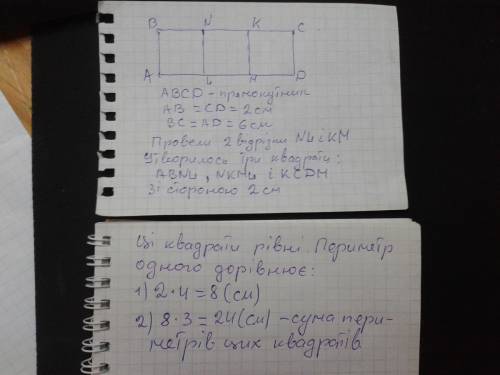 B N K C
A L M D
ABCD - прямокутник
AB = CD = 2см
BC = AD = 6см
Провели 2 відрізки NL i KM
Утворилось три квадрати:
ABNL, NKML i KCDM
Зі стороною 2 см
Ці квадрати рівні. Периметр
одного дорівнює:
1) 2·4=8(см)
2) 8·3=24(см) -сума пери-
метрів цих квадратів